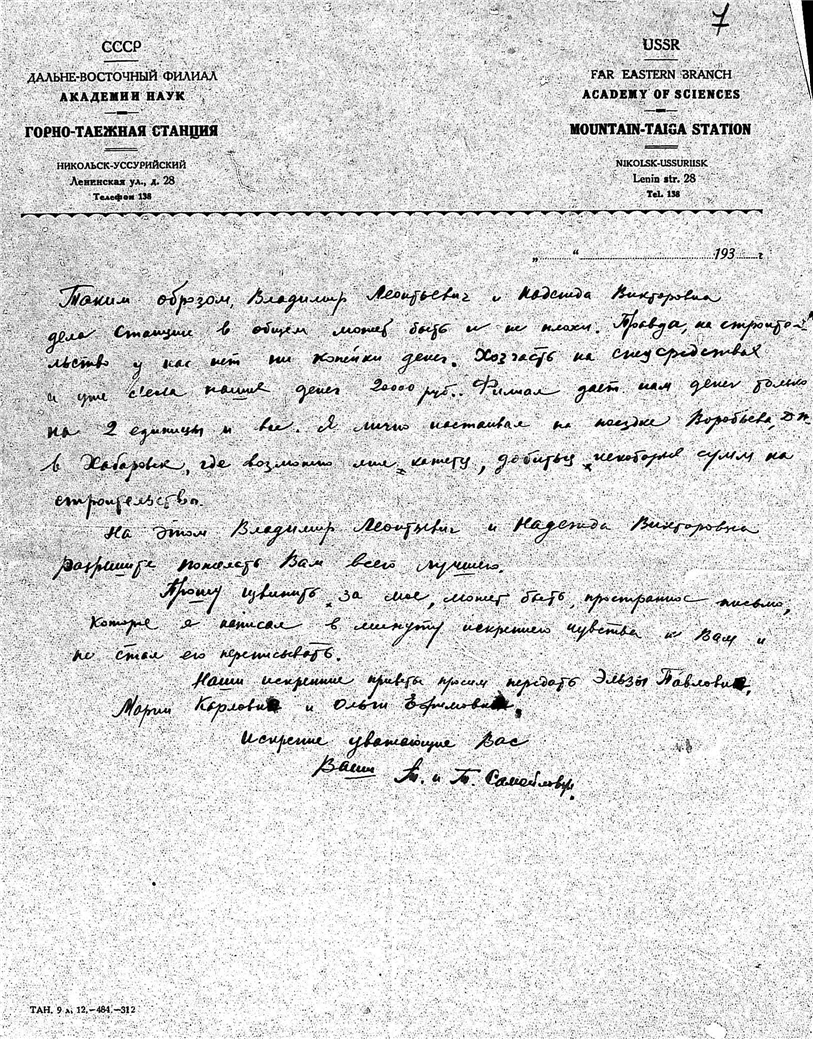 7
СССР
ДАЛЬНЕ-ВОСТОЧНЫЙ ФИЛИАЛ
АКАДЕМИИ НАУК
ГОРНО-ТАЕЖНАЯ СТАНЦИЯ
НИКОЛЬСК-УССУРИЙСКИЙ
Ленинская ул., д. 28
Телефон 138
USSR
FAR EASTERN BRANCH
ACADEMY OF SCIENCES
MOUNTAIN-TAIGA STATION
NIKOLSK-USSURIISK
Lenin str. 28
Tel. 138
„ “ 193 г.
Таким образом, Владимир Леонтьевич и Надежда Викторовна
дела Станции в общем может быть и не плохи. Правда, на строите-
льство у нас нет ни копейки денег. Хозчасть на спецсредствах
и уже съела наших денег 20000 руб.. Филиал дает нам денег только
на 2 единицы и все. Я лично настаивал на поездке Воробьева, Д.П.
в Хабаровск, где возможно мне кажется, добиться некоторые сумм на
строительство.
На этом Владимир Леонтьевич и Надежда Викторовна
разрешите пожелать Вам всего лучшего.
Прошу извинить за мое, может быть, пространное письмо,
которое я написал в минуту искреннего чувства к Вам и
не стал его переписывать.
Наши искренние приветы просим передать Эльзы Павловне,
Марии Карловне и Ольги Ефимовне.
Искренне уважающие Вас
Ваши Т. и Т. Самойловы.
ТАН. 9 л. 12.—484.—312